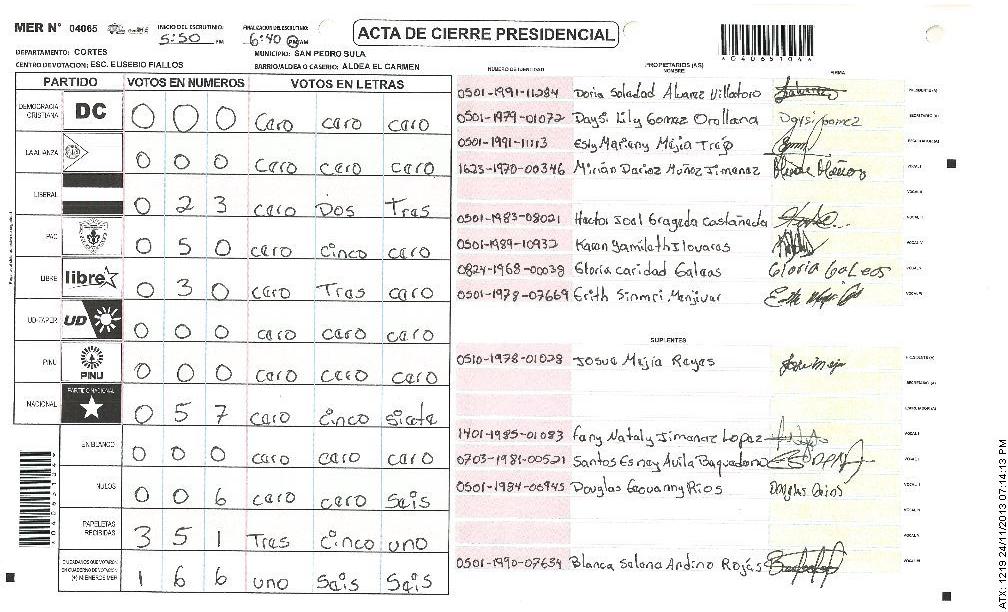 MER N° 04065 INICIO DEL ESCRUTINIO: 5:50 PM FINALIZACION DEL ESCRUTINIO: 6:40 PM AM ACTA DE CIERRE PRESIDENCIAL
DEPARTAMENTO: CORTES MUNICIPIO: SAN PEDRO SULA
CENTRO DE VOTACION: ESC. EUSEBIO FIALLOS BARRIO/ALDEA O CASERIO: ALDEA EL CARMEN
PARTIDO VOTOS EN NUMEROS VOTOS EN LETRAS
DEMOCRACIA CRISTIANA DC 0 0 0 cero cero cero
LA ALIANZA 0 0 0 cero cero cero
LIBERAL 0 2 3 cero Dos Tres
PAC 0 5 0 cero cinco cero
LIBRE libre 0 3 0 cero Tres cero
UD-FAPER UD 0 0 0 cero cero cero
PINU PINU 0 0 0 cero cero cero
NACIONAL PARTIDO NACIONAL 0 5 7 cero cinco siete
EN BLANCO 0 0 0 cero cero cero
NULOS 0 0 6 cero cero Seis
PAPELETAS RECIBIDAS 3 5 1 Tres cinco uno
CIUDADANOS QUE VOTARON EN CUADERNO DE VOTACION (+) MIEMBROS MER 1 6 6 uno Seis Seis
NUMERO DE IDENTIDAD PROPIETARIOS (AS) NOMBRE FIRMA
0501-1991-11284 Doria Soledad Alvarez Villatoro PRESIDENTE(A)
0501-1979-01072 Daysi Lily Gomez Orellana Daysi Gomez SECRETARIO(A)
0501-1991-11113 Esly Mariany Mejia Trejo ESCRUTADOR(A)
1623-1970-00346 Mirian Darioz Muñoz Jimenez VOCAL I
VOCAL II
0501-1983-08021 Hector Joel Grageda Castañeda VOCAL III
0501-1989-10932 Karen Yamileth Llovares VOCAL IV
0824-1968-00038 Gloria Caridad Galeas Gloria Galeas VOCAL V
0501-1978-07669 Erith Sinmri Menjivar VOCAL VI
SUPLENTES
0510-1978-01028 Josue Mejia Reyes Josue Mejia PRESIDENTE(A)
SECRETARIO(A)
ESCRUTADOR(A)
1401-1985-01083 Fany Nataly Jimenez Lopez VOCAL I
0703-1981-00521 Santos Esney Avila Baquedano VOCAL II
0501-1984-00945 Douglas Geovanny Rios Douglas Rios VOCAL III
VOCAL IV
VOCAL V
0501-1990-07634 Blanca Selena Andino Rojas VOCAL VI
ATX: 1219 24/11/2013 07:14:13 PM